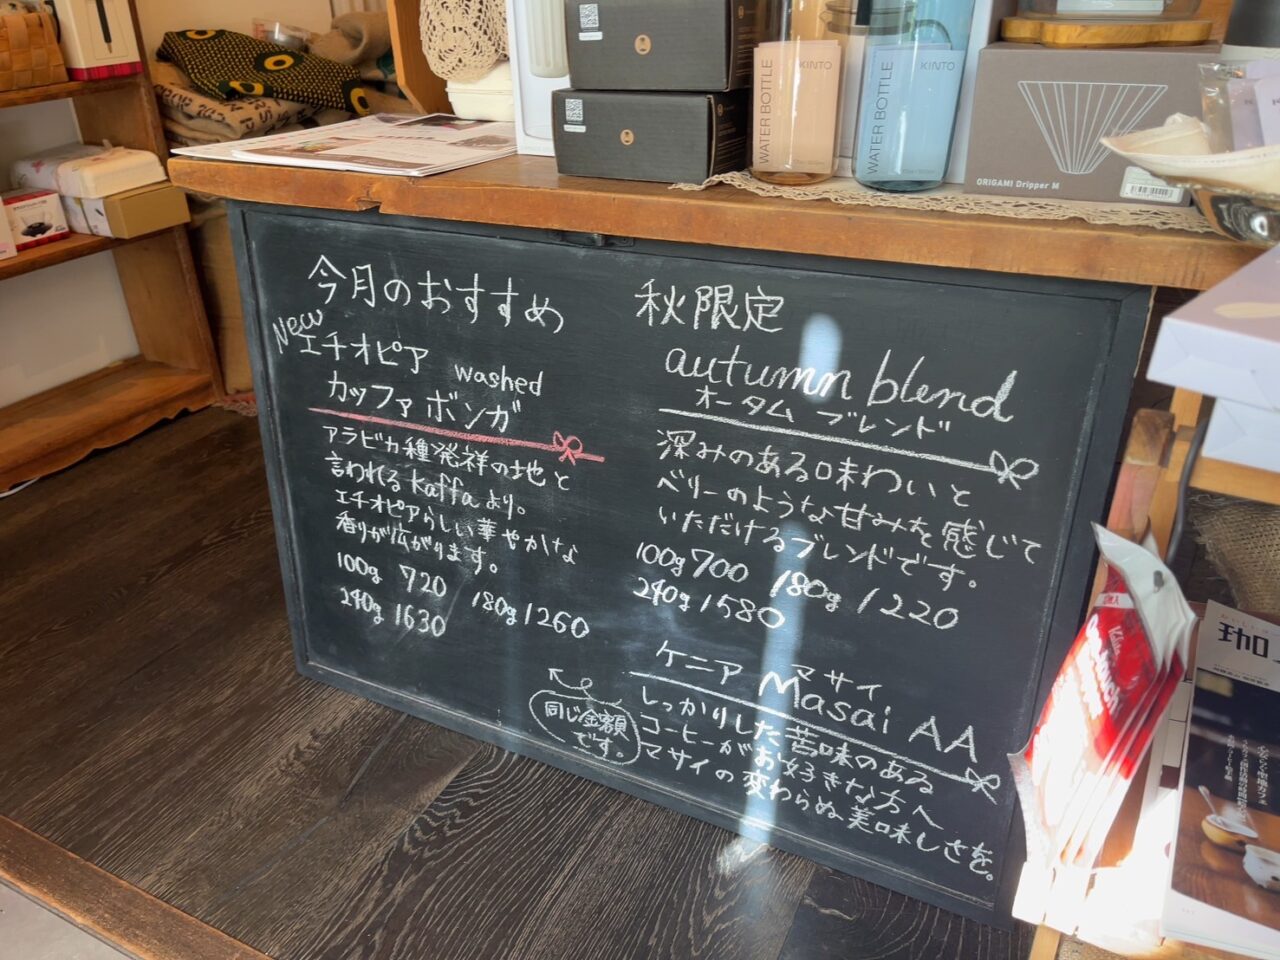 今月のおすすめ
New
エチオピア washed
カッファ ボンガ
アラビカ種発祥の地と
言われる kaffaより。
エチオピアらしい華やかな
香りが広がります。
100g 720
180g 1260
240g 1630
同じ金額
です。
秋限定
autumn blend
オータム ブレンド
深みのある味わいと
ベリーのような甘みを感じて
いただけるブレンドです。
100g 700 180g 1220
240g 1580
ケニア マサイ
Masai AA
しっかりした苦味のある
コーヒーがお好きな方へ
マサイの変わらぬ美味しさを。
WATER BOTTLE
KINTO
WATER BOTTLE
KINTO
ORIGAMI Dripper M
珈